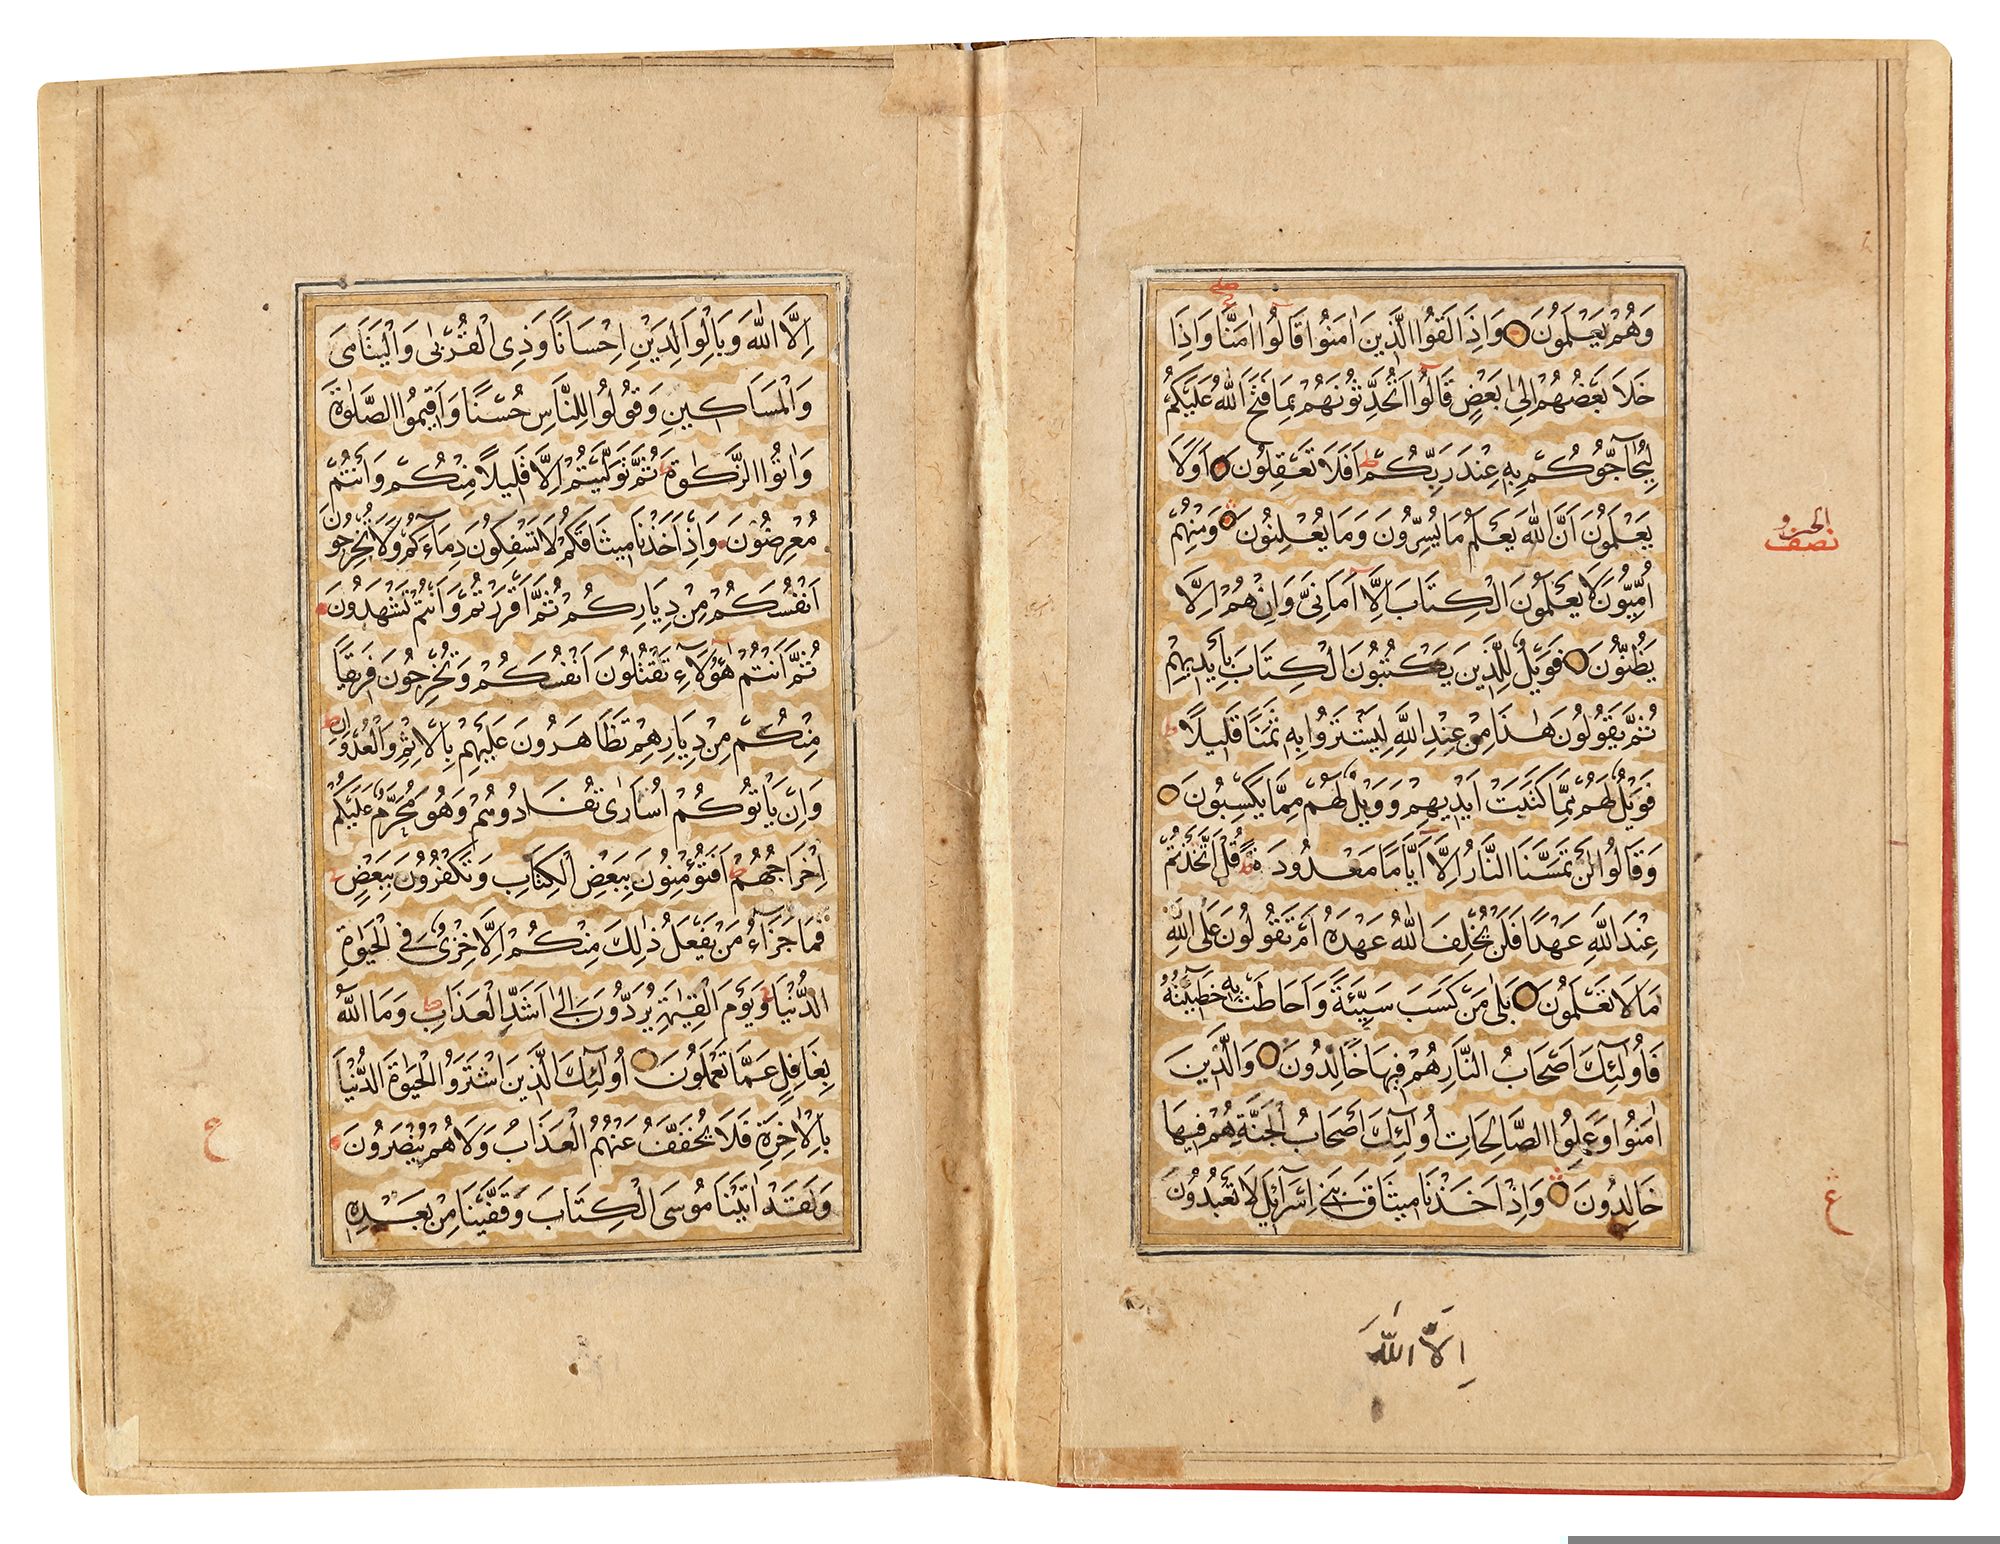 وَهُمْ يَعْلَمُونَ وَاِذَا لَقُوا الَّذِينَ اٰمَنُوا قَالُوا اٰمَنَّا وَاِذَا
خَلَا بَعْضُهُمْ اِلٰى بَعْضٍ قَالُوا اَتُحَدِّثُونَهُمْ بِمَا فَتَحَ اللّٰهُ عَلَيْكُمْ
لِيُحَاجُّوكُمْ بِهِ عِنْدَ رَبِّكُمْ ط اَفَلَا تَعْقِلُونَ اَوَلَا
يَعْلَمُونَ اَنَّ اللّٰهَ يَعْلَمُ مَا يُسِرُّونَ وَمَا يُعْلِنُونَ وَمِنْهُمْ
الحزو
نصف
اُمِّيُّونَ لَا يَعْلَمُونَ الْكِتَابَ اِلَّا اَمَانِيَّ وَاِنْ هُمْ اِلَّا
يَظُنُّونَ فَوَيْلٌ لِلَّذِينَ يَكْتُبُونَ الْكِتَابَ بِاَيْدِيهِمْ
ثُمَّ يَقُولُونَ هٰذَا مِنْ عِنْدِ اللّٰهِ لِيَشْتَرُوا بِهِ ثَمَنًا قَلِيلًا ط
فَوَيْلٌ لَهُمْ مِمَّا كَتَبَتْ اَيْدِيهِمْ وَوَيْلٌ لَهُمْ مِمَّا يَكْسِبُونَ
وَقَالُوا لَنْ تَمَسَّنَا النَّارُ اِلَّا اَيَّامًا مَعْدُودَةً ط قُلْ اَتَّخَذْتُمْ
عِنْدَ اللّٰهِ عَهْدًا فَلَنْ يُخْلِفَ اللّٰهُ عَهْدَهُ اَمْ تَقُولُونَ عَلَى اللّٰهِ
مَا لَا تَعْلَمُونَ بَلٰى مَنْ كَسَبَ سَيِّئَةً وَاَحَاطَتْ بِهِ خَطِيئَتُهُ
فَاُولٰئِكَ اَصْحَابُ النَّارِ هُمْ فِيهَا خَالِدُونَ وَالَّذِينَ
اٰمَنُوا وَعَمِلُوا الصَّالِحَاتِ اُولٰئِكَ اَصْحَابُ الْجَنَّةِ هُمْ فِيهَا
خَالِدُونَ وَاِذْ اَخَذْنَا مِيثَاقَ بَنِي اِسْرَآئِلَ لَا تَعْبُدُونَ
ع
اِلَّا اللّٰهَ
اِلَّا اللّٰهَ وَبِالْوَالِدَيْنِ اِحْسَانًا وَذِي الْقُرْبٰى وَالْيَتَامَى
وَالْمَسَاكِينِ وَقُولُوا لِلنَّاسِ حُسْنًا وَاَقِيمُوا الصَّلٰوةَ
وَاٰتُوا الزَّكٰوةَ ثُمَّ تَوَلَّيْتُمْ اِلَّا قَلِيلًا مِنْكُمْ وَاَنْتُمْ
مُعْرِضُونَ وَاِذْ اَخَذْنَا مِيثَاقَكُمْ لَا تَسْفِكُونَ دِمَآءَكُمْ وَلَا تُخْرِجُونَ
اَنْفُسَكُمْ مِنْ دِيَارِكُمْ ثُمَّ اَقْرَرْتُمْ وَاَنْتُمْ تَشْهَدُونَ
ثُمَّ اَنْتُمْ هٰؤُلَآءِ تَقْتُلُونَ اَنْفُسَكُمْ وَتُخْرِجُونَ فَرِيقًا
مِنْكُمْ مِنْ دِيَارِهِمْ تَظَاهَرُونَ عَلَيْهِمْ بِالْاِثْمِ وَالْعُدْوَانِ ط
وَاِنْ يَاْتُوكُمْ اُسَارٰى تُفَادُوهُمْ وَهُوَ مُحَرَّمٌ عَلَيْكُمْ
اِخْرَاجُهُمْ ط اَفَتُؤْمِنُونَ بِبَعْضِ الْكِتَابِ وَتَكْفُرُونَ بِبَعْضٍ
فَمَا جَزَآءُ مَنْ يَفْعَلُ ذٰلِكَ مِنْكُمْ اِلَّا خِزْيٌ فِي الْحَيٰوةِ
الدُّنْيَا وَيَوْمَ الْقِيٰمَةِ يُرَدُّونَ اِلٰى اَشَدِّ الْعَذَابِ ط وَمَا اللّٰهُ
بِغَافِلٍ عَمَّا تَعْمَلُونَ اُولٰئِكَ الَّذِينَ اشْتَرَوُا الْحَيٰوةَ الدُّنْيَا
بِالْاٰخِرَةِ فَلَا يُخَفَّفُ عَنْهُمُ الْعَذَابُ وَلَا هُمْ يُنْصَرُونَ
ع
وَلَقَدْ اٰتَيْنَا مُوسَى الْكِتَابَ وَقَفَّيْنَا مِنْ بَعْدِهِ